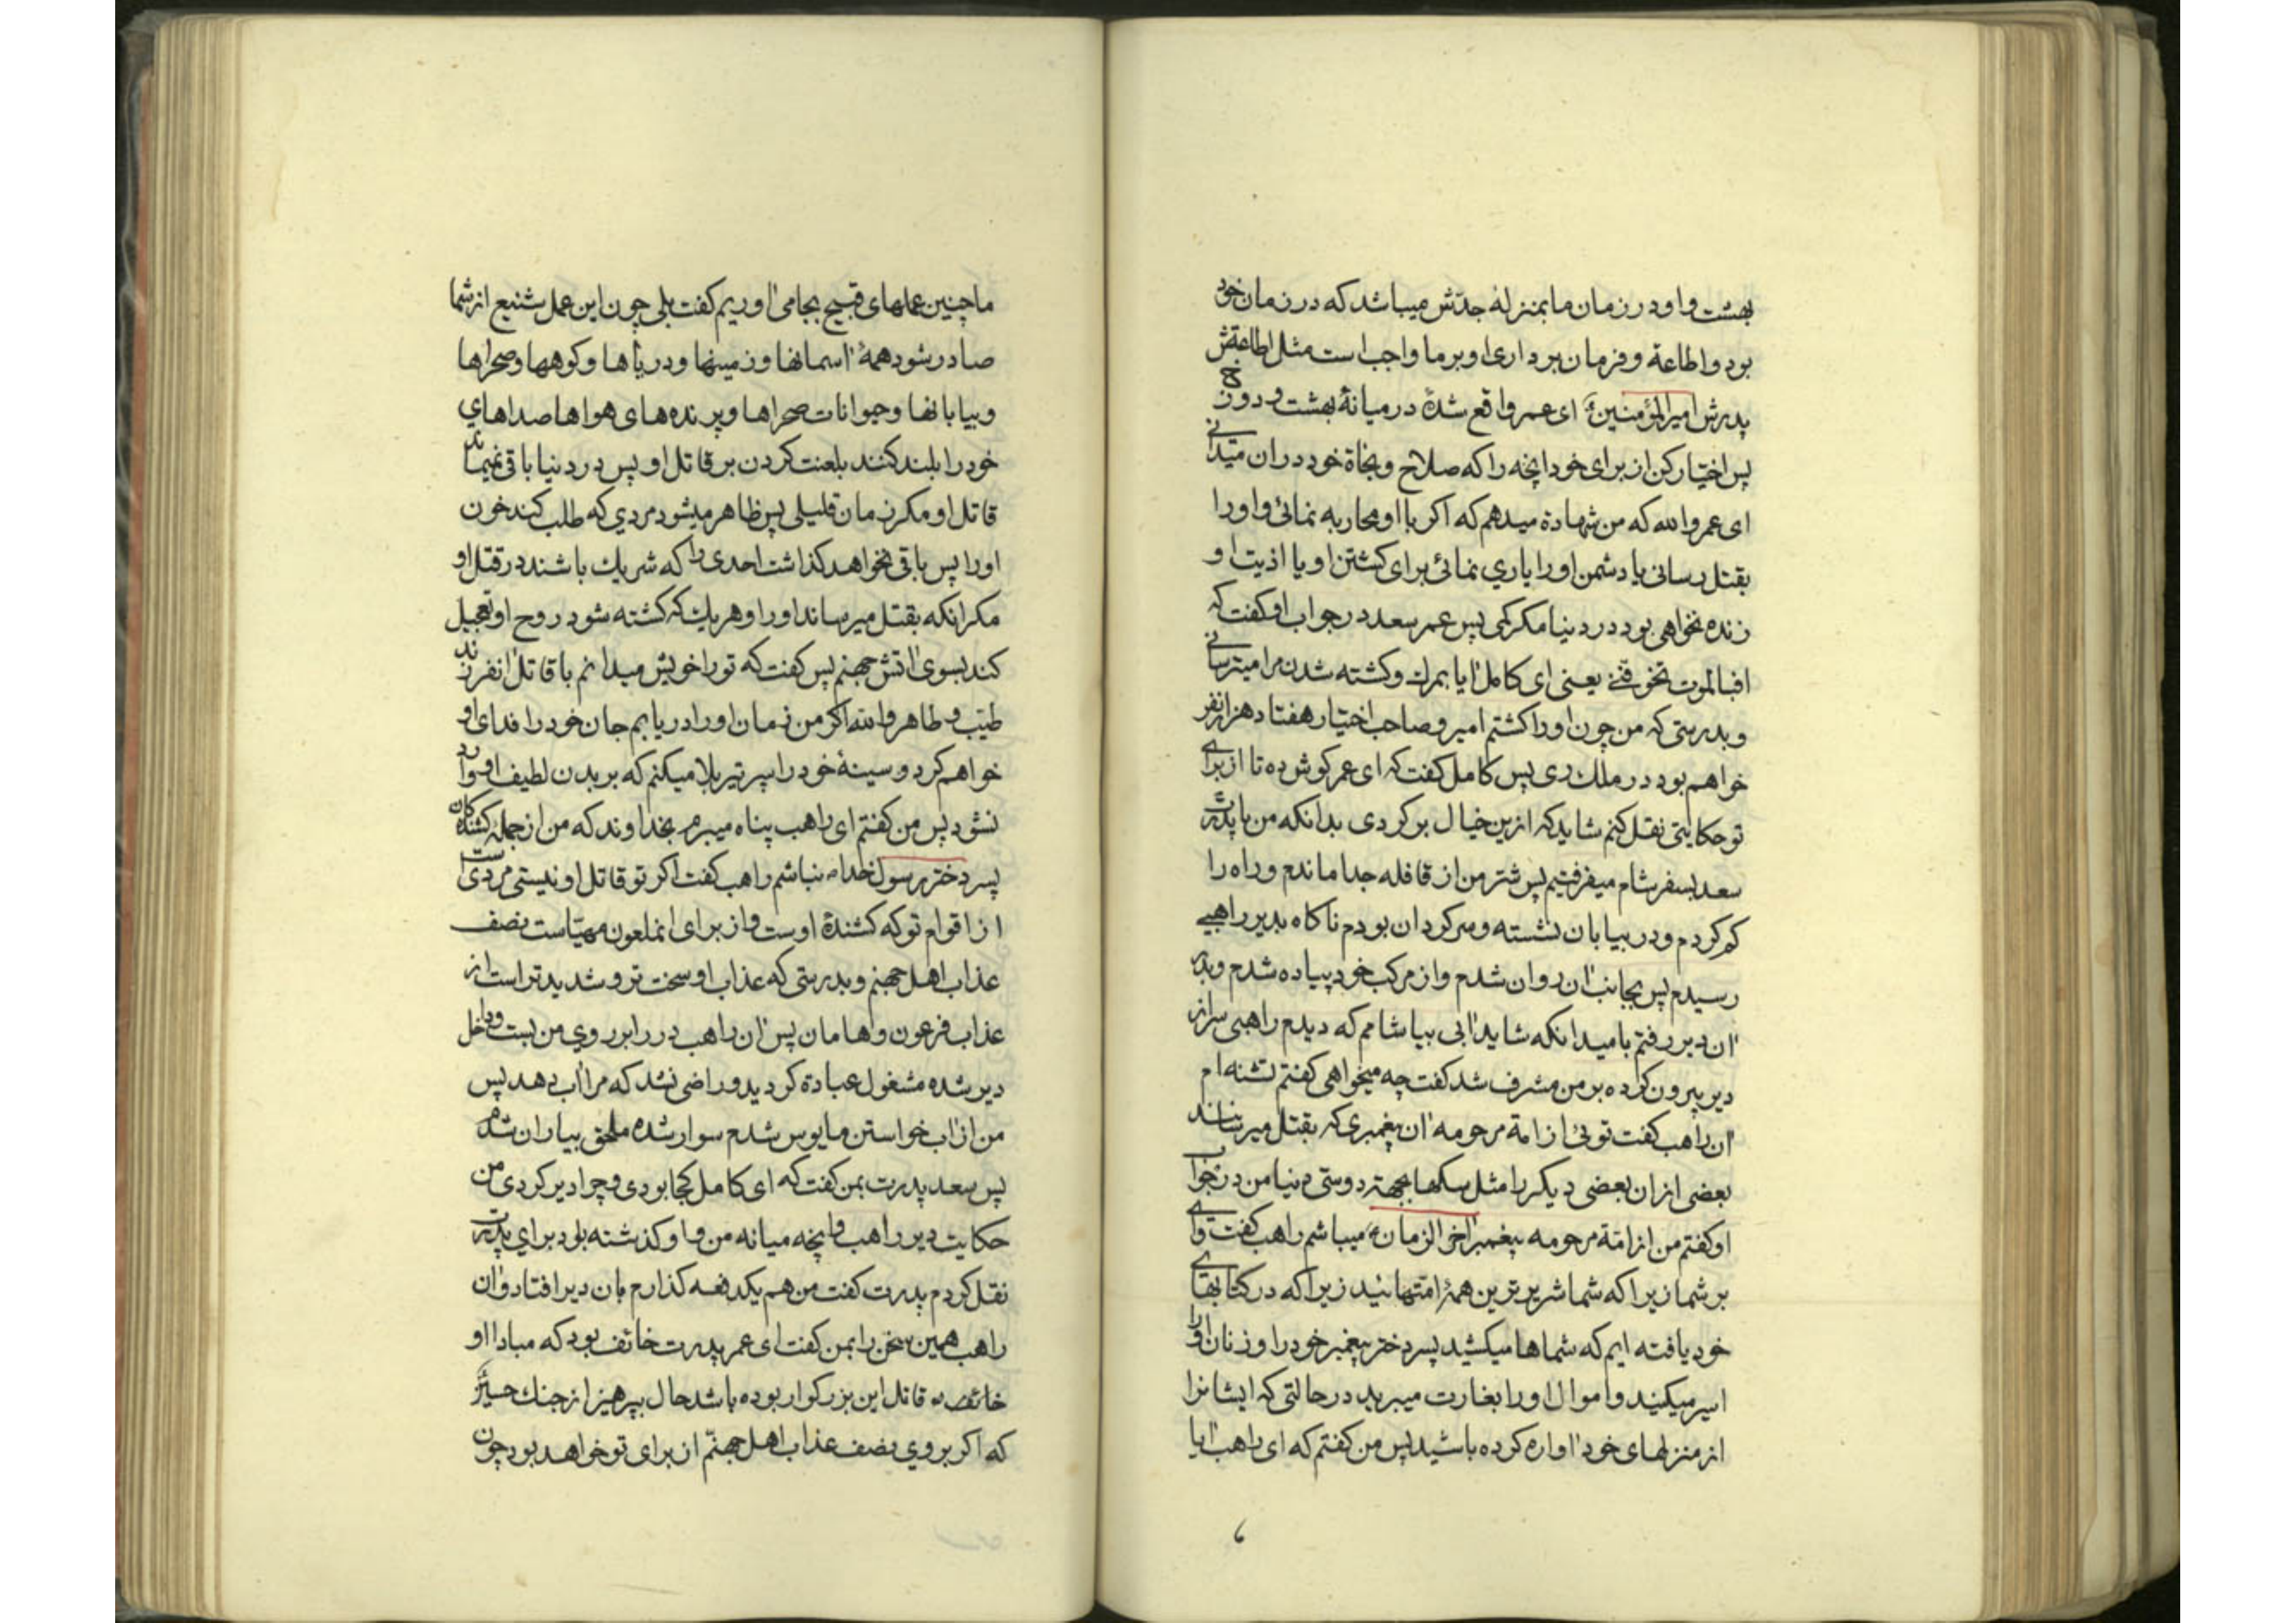 بهشت و او در زمان ما بمنزلهٔ جدّش میباشد که در زمان خود
بود و اطاعة و فرمان برداری او بر ما واجب است مثل اطاعة
پدرش امیرالمؤمنین ای عمر واقع شدهٔ در میانهٔ بهشت و دوزخ
پس اختیار کن از برای خود انچه را که صلاح و نجاة خود در ان میدانی
ای عمر والله که من شهادة میدهم که اکر با او محاربه نمائی و او را
بقتل رسانی یا دشمن او را یاری نمائی برای کشتن او یا اذیت او
زنده نخواهی بود در دنیا مکر کمی پس عمر سعد در جواب او کفت که
افبالموت تخوفنی یعنی ای کامل ایا بمرك و کشته شدن مرا میترسانی
و بدرستی که من چون او را کشتم امیر و صاحب اختیار هفتاد هزار نفر
خواهم بود در ملك ری پس کامل کفت که ای عمر کوش ده تا از برای
تو حکایتی نقل کنم شاید که ازین خیال بر کردی بدانکه من با پدرت
سعد بسفر شام میرفتیم پس شتر من از قافله جدا ماندم و راه را
کم کردم و در بیابان تشنه و سرکردان بودم ناکاه بدیر راهبی
رسیدم پس بجانب ان روان شدم و از مرکب خود پیاده شدم و بدر
ان دیر رفتم بامید انکه شاید ابی بیاشامم که دیدم راهبی سر از
دیر بیرون کرده بر من مشرف شد کفت چه میخواهی کفتم تشنه ام
ان راهب کفت توئی از امة مرحومه ان پیغمبری که بقتل میرسانند
بعضی از ان بعضی دیکر را مثل سکها بجهة دوستی دنیا من در جواب
او کفتم من از امّة مرحومه پیغمبر اخر الزمان میباشم راهب کفت وای
بر شما زیرا که شما شریرترین همهٔ امتها ئید زیرا که در کتابهای
خود یافته ایم که شماها میکشید پسر دختر پیغمبر خود را و زنان او را
اسیر میکنید و اموال او را بغارت میبرید در حالتی که ایشانرا
از منزلهای خود اواره کرده باشید پس من کفتم که ای راهب ایا
ما چنین عملهای قبیح بجا می اوریم کفت بلی چون این عمل شنیع از شما
صادر شود همهٔ اسمانها و زمینها و دریاها و کوهها و صحراها
و بیابانها و حیوانات صحراها و پرنده های هواها صداهای
خود را بلند کنند بلعنت کردن بر قاتل او پس در دنیا باقی نمیماند
قاتل او مکر زمان قلیلی پس ظاهر میشود مردی که طلب کند خون
او را پس باقی نخواهد کذاشت احدی را که شریك باشند در قتل او
مکر انکه بقتل میرساند او را و هر یك که کشته شود روح او تعجیل
کند بسوی اتش جهنم پس کفت که تو را خویش میدانم با قاتل انفرزند
طیّب و طاهر والله اکر من زمان او را دریابم جان خود را فدای او
خواهم کرد و سینهٔ خود را سپر تیر بلا میکنم که بر بدن لطیف او وارد
نشود پس من کفتم ای راهب پناه میبرم بخداوند که من از جملهٔ کشندکان
پسر دختر رسول خدا نباشم راهب کفت اکر تو قاتل او نیستی مردی است
از اقوام تو که کشندهٔ اوست و از برای انملعون مهیّاست نصف
عذاب اهل جهنم و بدرستی که عذاب او سخت تر و شدیدتر است از
عذاب فرعون و هامان پس ان راهب در را بر روی من بست و داخل
دیر شده مشغول عبادة کردید و راضی نشد که مرا اب دهد پس
من از اب خواستن مایوس شدم سوار شده ملحق بیاران شدم
پس سعد پدرت بمن کفت که ای کامل کجا بودی و چرا دیر کردی من
حکایت دیر راهب و انچه میانه من و او کذشته بود برای پدرت
نقل کردم پدرت کفت من هم یکدفعه کذارم بان دیر افتاد و ان
راهب همین سخن را بمن کفت ای عمر پدرت خائف بود که مبادا او
قاتل این بزرکوار بوده باشد حال بپرهیز از جنك حسین
که اکر بروی نصف عذاب اهل جهنّم از برای تو خواهد بود چون